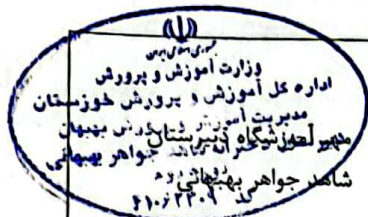 جمهوری اسلامی ایران
وزارت آموزش و پرورش
اداره کل آموزش و پرورش خوزستان
مدیریت آموزش و پرورش بهبهان
مهر آموزشگاه دبیرستان
شاهد جواهر بهبهانی
شاهد جواهر بهبهانی
کد